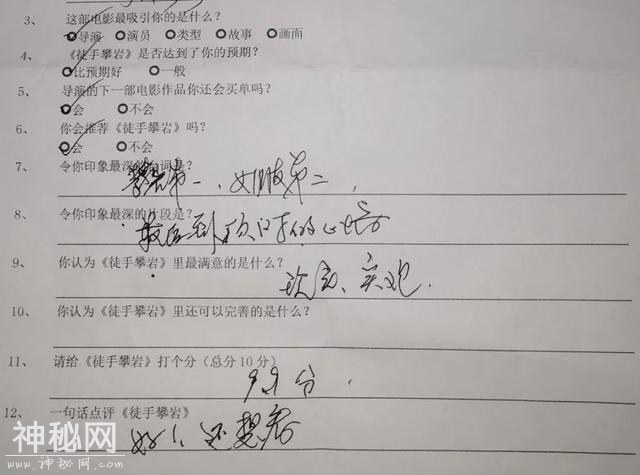 3、 这部电影最吸引你的是什么?
导演 演员 类型 故事 画面
4、 《徒手攀岩》是否达到了你的预期?
比预期好 一般
5、 导演的下一部电影作品你还会买单吗?
会 不会
6、 你会推荐《徒手攀岩》吗?
会 不会
7、 令你印象最深的台词是?
攀岩第一、女朋友第二,
8、 令你印象最深的片段是?
最后到顶
9、 你认为《徒手攀岩》里最满意的是什么?
10、 你认为《徒手攀岩》里还可以完善的是什么?
11、 请给《徒手攀岩》打个分(总分10分)
9.9分.
12、 一句话点评《徒手攀岩》
好!、还想看
神秘网
www.神秘网.com